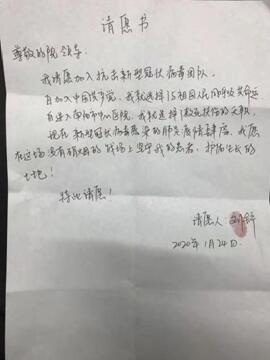 请愿书
尊敬的院领导：
我请愿加入抗击新型冠状病毒团队。
自加入中国共产党，我就选择了与祖国人民同呼吸共命运
自进入南阳市中心医院，我就选择了救死扶伤的天职
现在新型冠状病毒感染的肺炎疫情肆虐，我愿
在这场没有硝烟的战场上坚守我的患者，护佑生长的
土地！
特此请愿！
请愿人
2020年1月24日